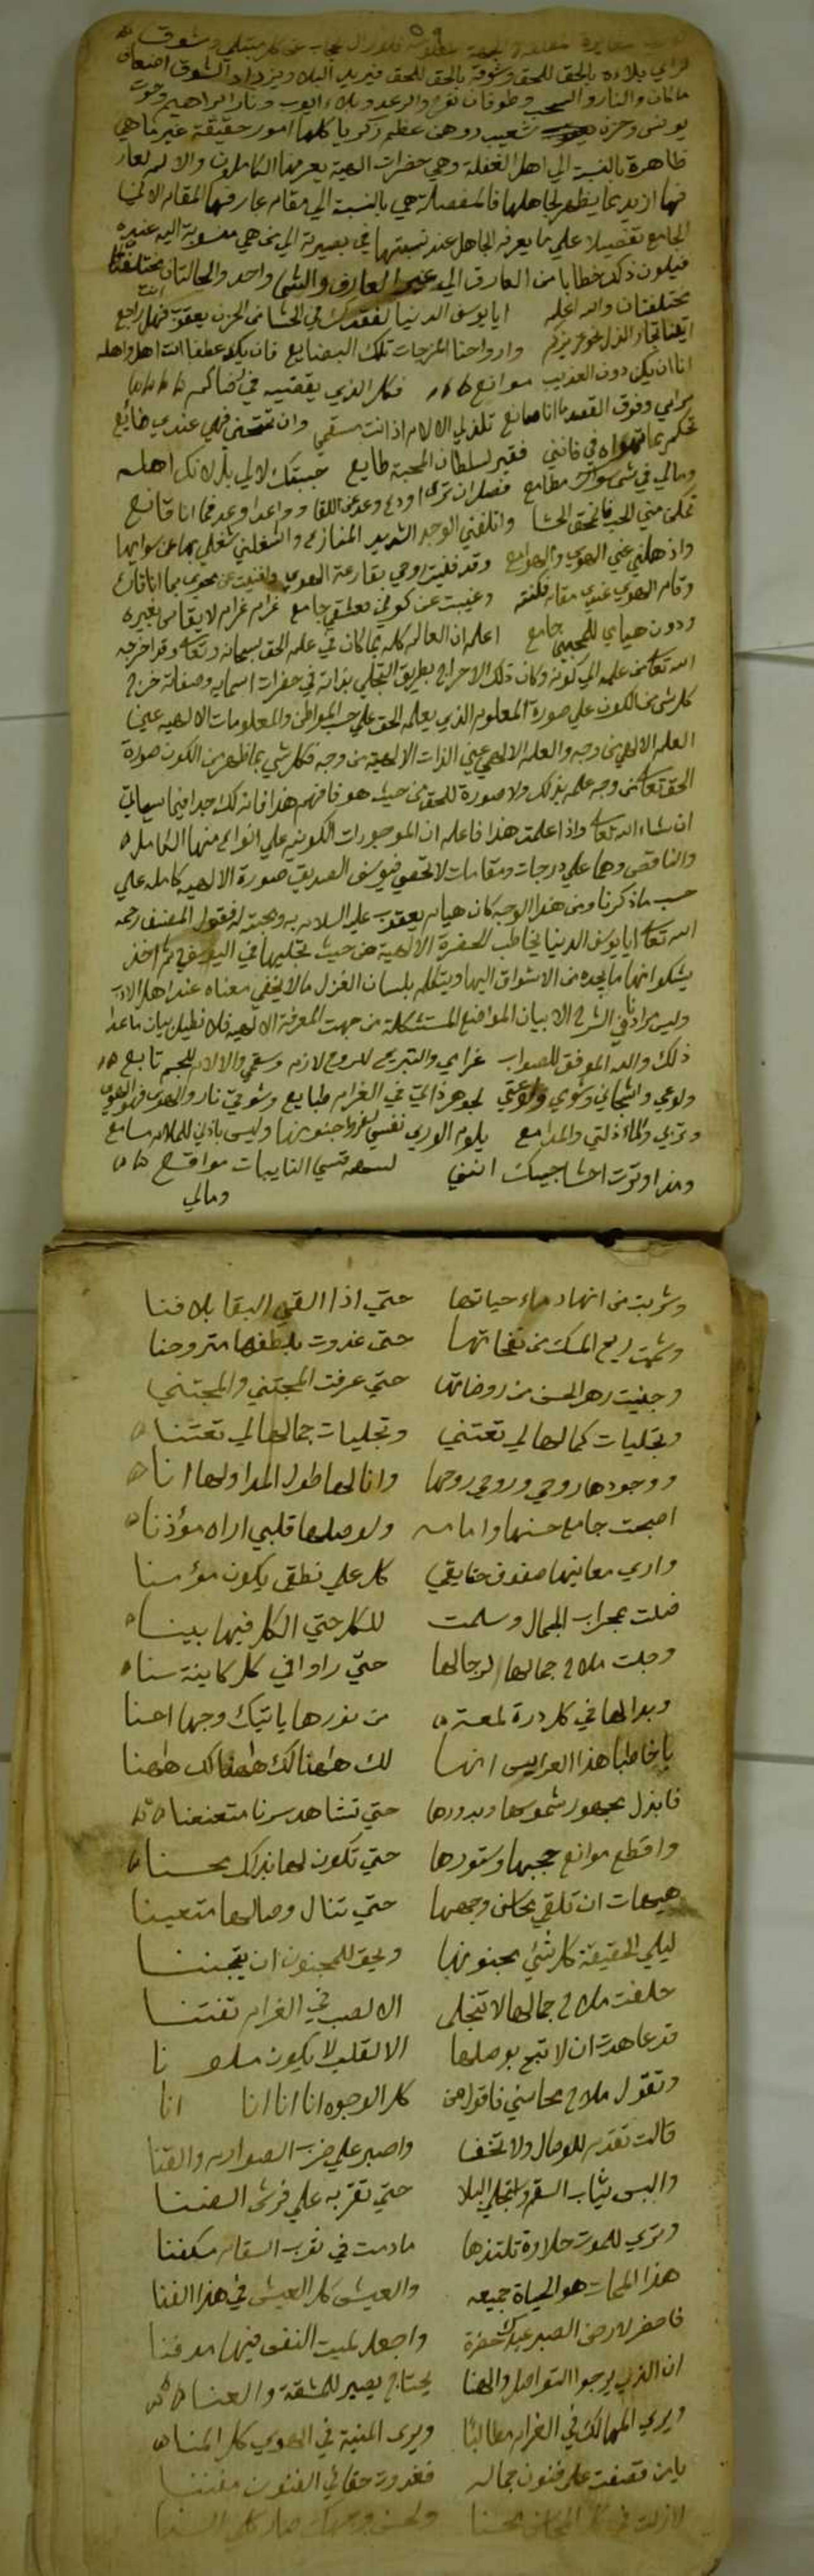 فراي بلاءه بالحق للحق وشوقه بالحق للحق فيريد البلاء ويزداد الشوق
ماكان والنار و وطوفان نوح والرعد وبلاء ايوب ونار ابراهيم وحوت
يونس وحزن شعيب ووهن عظم زكريا كلها امور حقيقة غير ما هي
ظاهرة بالنسبة الي اهل الغفلة وهي حضرات الهية يعرفها الكاملون والالم لعار
فها ازيد مما يظهر لجاهلها فالمفصلة هي بالنسبة الي مقام عارفها المقام
الجامع تفصيلا علي ما يعرفه الجاهل عند نسبتها في بصيرته الي من هي منسوبة اليه عنده
فيكون ذلك خطابا من العارف الي عين العارف والشي واحد والحالتان
مختلفتان والله اعلم ايا يوسف الدنيا لفقدك في الحشا من الحزن يعقوب فهل راجع
اتينا تجار الذل نحو عزيزكم وارواحنا المزجات تلك البضايع فان يك عطفا انت اهل واهله
اناان يكن دون العذيب موانع فكل الذي يقضيه في رضاكم
مرامي وفوق القصد ما انا صانع تلذ لي الالام اذ انت مسقمي وان تمتحني فهي عندي صنائع
تحكم بما تهواه في فانني فقير لسلطان المحبة طايع حببتك لا لي بل لانك اهله
ومالي في شي سواك مطامع فصل ان ترى او دع وعد عن اللقا وواعد اوعد فما انا قانع
تمكن مني الحب فامتحق الحشا واتلفني الوجد الشديد المنازع واشغلني شغلي بها عن سوايها
واذهلني عني الهوي والهوامع وقد فنيت روحي بقارعة الهوي وافنيت عن محوي بما انا قارع
وقام الهوي عندي مقامه فكنته وغيبت عن كوني فعشقي جامع غرام غرامي لا يقاس بغيره
ودون هيامي للمحبين جامع اعلم ان العالم كله بما كان في علم الحق سبحانه وتعالى وقد اخرجه
الله تعالى من علمه الي كونه وكان ذلك الاخراج بطريق التجلي بذاته في حضرات اسمايه وصفاته خرج
كل شي من الكون علي صورة المعلوم الذي يعلمه الحق علي حسب المواطن والمعلومات الالهيه عين
العلم الالهي من وجه والعلم الالهي عين الذات الالهية من وجه فكل شي بما ظهر من الكون صورة
الحق تعالى من وجه علمه بذلك ولا صورة للحق من حيث هو فافهم هذا فانه لك جدا فيما سياتي
ان شاء الله تعالى واذا علمت هذا فاعلم ان الموجودات الكونيه علي انواع منها الكامل
والناقص وهما علي درجات ومقامات لا تحصي فيوسف الصديق صورة الالهيه كامله علي
حسب ما ذكرنا ومن هذا الوجه كان هيام يعقوب عليه السلام به ومحبته له فقول المصنف رحمه
الله تعالى ايا يوسف الدنيا يخاطب للحضرة الالهية من حيث تجليها في اليوسفي ثم اخذ
يشكو انها ما يجده من الاشواق اليها ويتكلم بلسان الغزل ما لا يخفي معناه عند اهل الادب
وليس مرادنا في الشرح الا بيان المواضع المستشكلة من جهت المعرفة الالهيه فلا نطيل بيان ما عدا
ذلك والله الموفق للصواب غرامي والتبريح للروح لازم وسقمي والالام للجسم تابع
ولوعي واشجاني وشوقي ولوعتي لجوهر ذاتي في الغرام طبايع وشوقي نار والهوي فهو الهوي
وتربي والماء ذلتي والمدامع يلوم الوري نفسي لفرط جنونها وليس باذني للملام مسامع
ومذ اوترت احشا حبيك انني لسهم قسي النايبات مواقع
ومالي
وشربت من انهار ماء حياتها حتي اذا القي البقا بلا فنا
وشممت ريح المسك من نفحاتها حتى غدوت بلطفها متروحنا
وجنيت زهر الحسن من روضاتها حتي عرفت المجتني والمجتني
وتجليات كمالها لي تعتني وتجليات جمالها لي تعتنا
ووجودها روحي وروحي روحها وانا لها طول المدا ولها انا
اصبحت جامع حسنها وامامه ولوصلها قلبي اراه مؤذنا
واري معانيها صفوف حنايقي كل علي نطقي يكون مؤمنا
فصلت بمحراب الجمال وسلمت للكل حتي الكل فيها بينا
وجلت ملاح جمالها لرجالها حتي راوا في كل كاينة سنا
وبدا لها في كل درة لمعة من نورها ياتيك وجها احسنا
يا خاطبا هذا العرايس انها لك هاهنا لك هاهنا لك هاهنا
فابذل بجمهور شموسها وبدورها حتي تشاهد سرنا متعنعنا
واقطع موانع حجبها وستورها حتي تكون لها بذلك محسنا
هيهات ان تلقي محاسن وجهها حتي تنال وصالها متعينا
ليلي الحقيقة كل شي مجنونها ويحق للمجنون ان يتجننا
حلفت ملاح جمالها لا تنجلي الا لصب في الغرام تفتنا
قد عاهدت ان لا تبح بوصلها الا لقلب لا يكون ملونا
وتقول ملاح محاسني فاقول من كل الوجوه انا انا انا انا
قالت تقدم للوصال ولا تخف واصبر علي ضرب الصوارم والقنا
والبس ثياب السقم واستحلي البلا حتي تقر به علي فرش الضنا
وتري للموت حلاوة تلتذها ما دمت في ثوب السقام مكفنا
هذا الممات هو الحياة جميعه والعيش كل العيش في هذا الفنا
فاحفر لارض الصبر عبدك حفرة واجعل لميت النفس فيها مدفنا
ان الذي يرجو التواصل والهنا يحتاج يصبر للمشقة والعنا
ويري المهالك في الغرام مطالبا ويرى المنية في الهوي كل المنا
يا من تصنفت علي فنون جماله فغدوت حقا في الفنون مفننا
لازلت في كل المحاسن محسنا